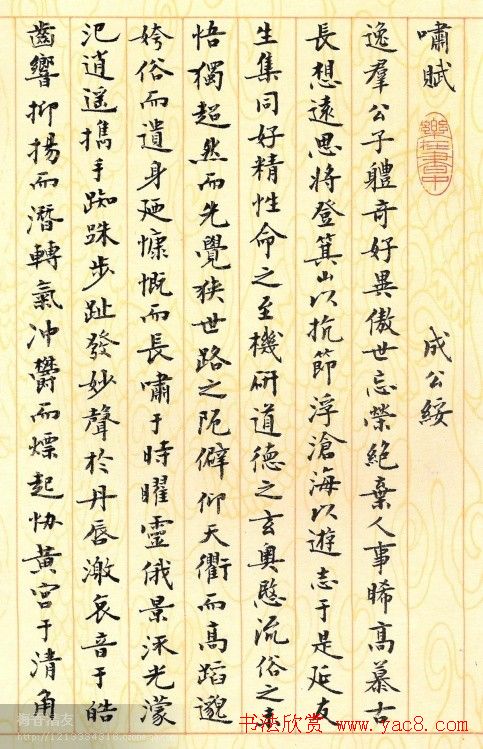 嘯賦 成公綏
逸羣公子體奇好異傲世忘榮絶棄人事睎高慕古
長想遠思將登箕山以抗節浮滄海以遊志于是延友
生集同好精性命之至機研道德之玄奥愍流俗之未
悟獨超然而先覺狭世路之阨僻仰天衢而高蹈邈
姱俗而遺身廼慷慨而長嘯于時曜靈俄景沬光濛
汜逍遥攜手踟跦步趾發妙聲於丹唇激哀音于皓
齒響抑揚而潛轉氣冲鬱而熛起协黄宫于清角
书法欣赏 www.yac8.com